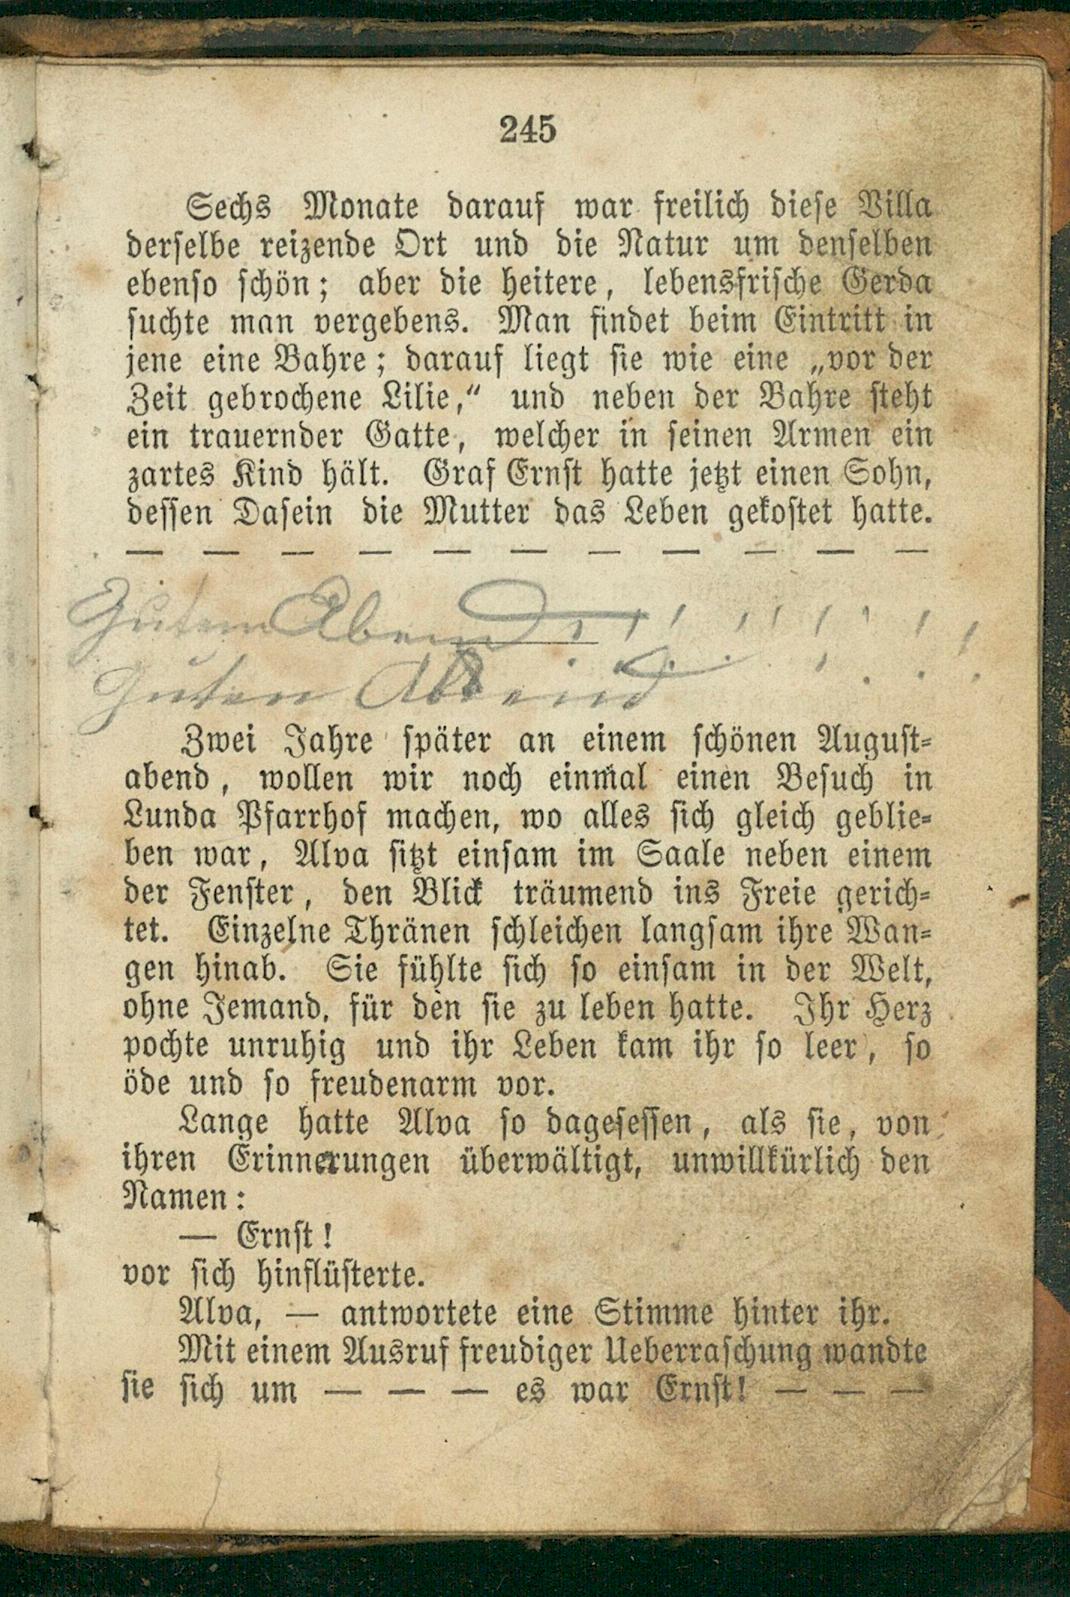 245
Sechs Monate darauf war freilich diese Villa
derselbe reizende Ort und die Natur um denselben
ebenso schön; aber die heitere, lebensfrische Gerda
suchte man vergebens. Man findet beim Eintritt in
jene eine Bahre; darauf liegt sie wie eine „vor der
Zeit gebrochene Lilie,“ und neben der Bahre steht
ein trauernder Gatte, welcher in seinen Armen ein
zartes Kind hält. Graf Ernst hatte jetzt einen Sohn,
dessen Dasein die Mutter das Leben gekostet hatte.
— — — — — — — — — — —
Guten Abend ! ! ! ! ! ! ! ! ! !
Guten Abend
Zwei Jahre später an einem schönen August-
abend, wollen wir noch einmal einen Besuch in
Lunda Pfarrhof machen, wo alles sich gleich geblie-
ben war, Alva sitzt einsam im Saale neben einem
der Fenster, den Blick träumend ins Freie gerich-
tet. Einzelne Thränen schleichen langsam ihre Wan-
gen hinab. Sie fühlte sich so einsam in der Welt,
ohne Jemand, für den sie zu leben hatte. Ihr Herz
pochte unruhig und ihr Leben kam ihr so leer, so
öde und so freudenarm vor.
Lange hatte Alva so dagesessen, als sie, von
ihren Erinnerungen überwältigt, unwillkürlich den
Namen:
— Ernst!
vor sich hinflüsterte.
Alva, — antwortete eine Stimme hinter ihr.
Mit einem Ausruf freudiger Ueberraschung wandte
sie sich um — — — es war Ernst! — — —